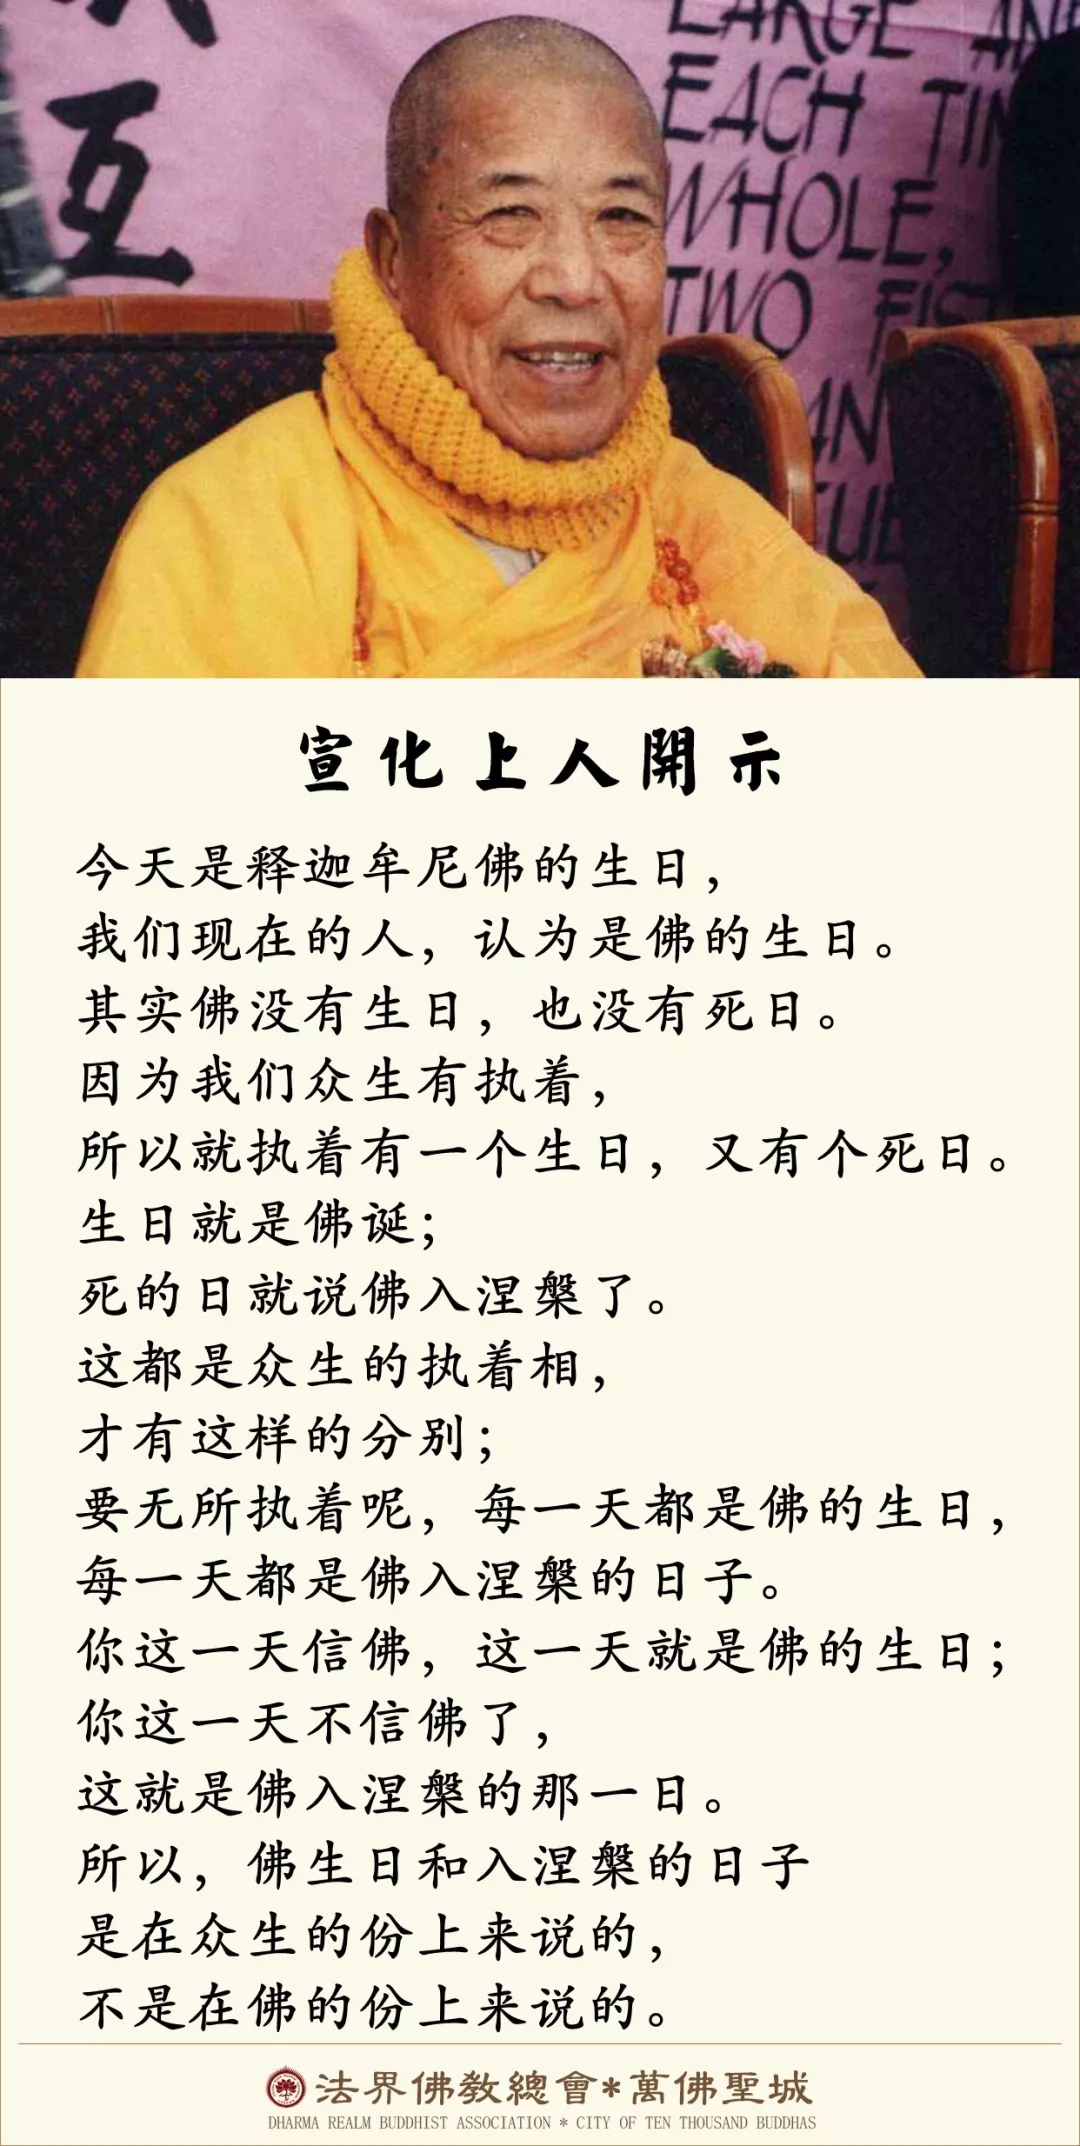 互
LARGE AN
EACH TIM
WHOLE,
TWO FIST
AN
宣化上人開示
今天是释迦牟尼佛的生日，
我们现在的人，认为是佛的生日。
其实佛没有生日，也没有死日。
因为我们众生有执着，
所以就执着有一个生日，又有个死日。
生日就是佛诞；
死的日就说佛入涅槃了。
这都是众生的执着相，
才有这样的分别；
要无所执着呢，每一天都是佛的生日，
每一天都是佛入涅槃的日子。
你这一天信佛，这一天就是佛的生日；
你这一天不信佛了，
这就是佛入涅槃的那一日。
所以，佛生日和入涅槃的日子
是在众生的份上来说的，
不是在佛的份上来说的。
法界佛教總會*萬佛聖城
DHARMA REALM BUDDHIST ASSOCIATION * CITY OF TEN THOUSAND BUDDHAS